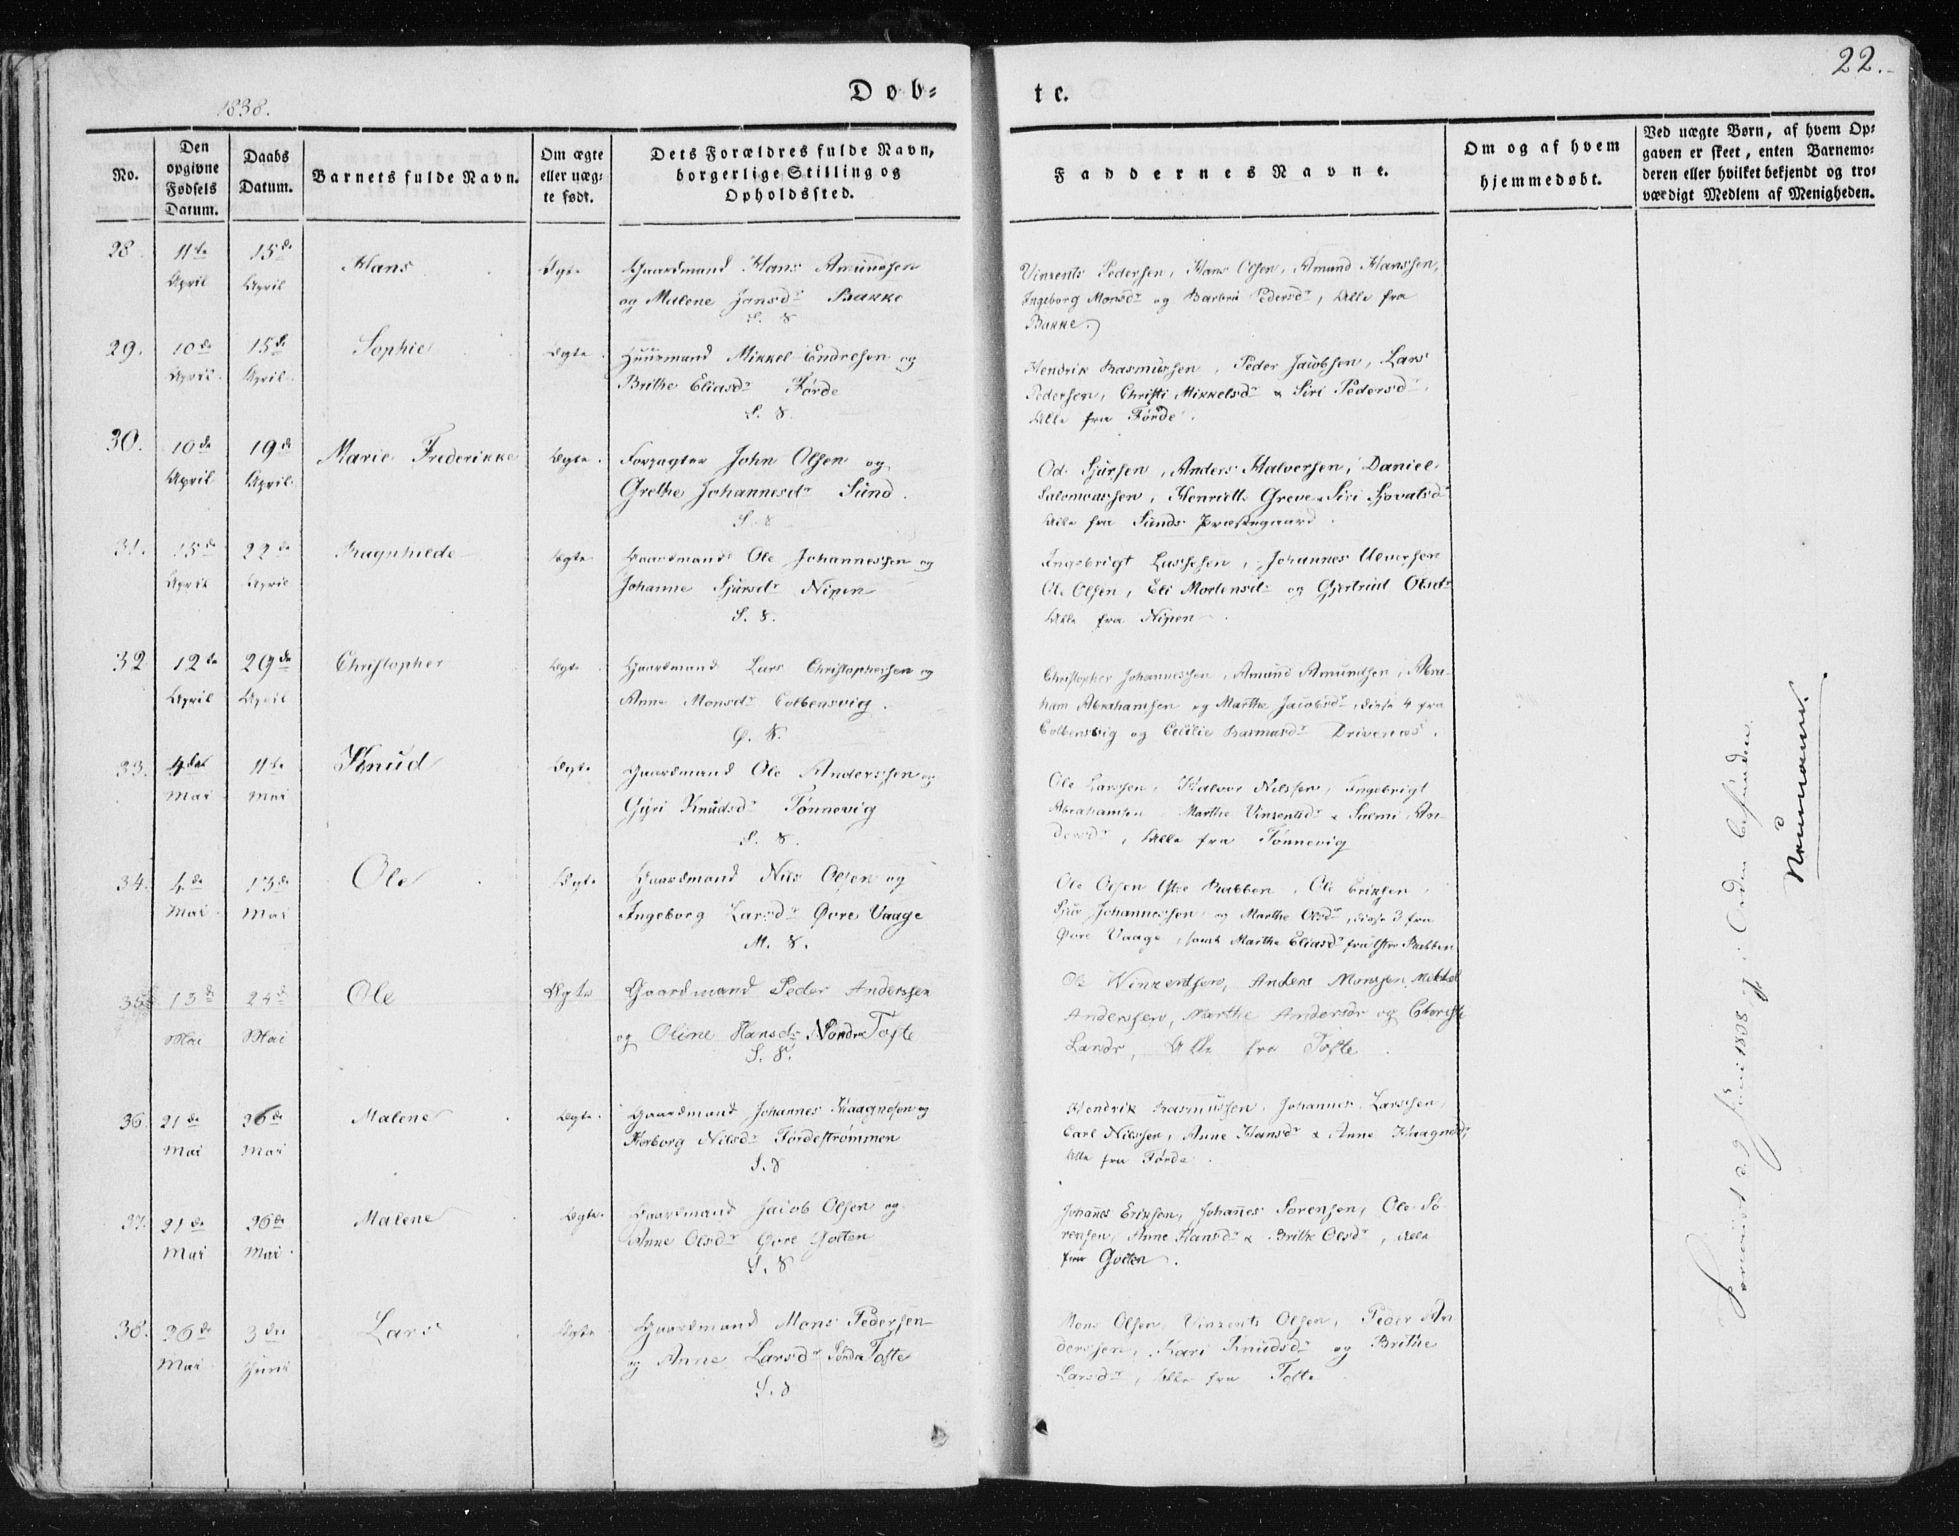 22.
1838.
Døb-
te.
No.
Den opgivne Fødsels Datum.
Daabs Datum.
Barnets fulde Navn.
Om ægte eller uægte født.
Dets Forældres fulde Navn, borgerlige Stilling og Opholdssted.
Faddernes Navne.
Om og af hvem hjemmedøbt.
Ved uægte Børn, af hvem Opgaven er skeet, enten Barnemoderen eller hvilket bekjendt og troværdigt Medlem af Menigheden.
28. 11te April 15de April Hans Ægte
Gaardmand Hans Amundsen
og Malene Jansdr Bakke
S. S
Vinzents Pedersen, Hans Olsen, Amund Hanssen,
Ingeborg Monsdr og Barbra Pedersdr, Alle fra
Bakke.
29. 10de April 15de April Sophie Ægte
Huusmand Mikkel Endresen og
Brithe Eliasdr Førde
S. S.
Hendrik Rasmussen, Peder Jacobsen, Lars
Pedersen, Christi Mikkelsdr & Siri Pedersdr,
Alle fra Førde.
30. 10de April 19de April Marie Frederikke Ægte
Forpagter John Olsen og
Grethe Johannesdr Sund.
S. S
Od Sjursen, Anders Halversen, Daniel
Salomonssen, Henriette Greve & Siri
Alle fra Sunds Præstegaard.
31. 15de April 22de April Ragnhilde Ægte
Gaardmand Ole Johannessen og
Johanne Sjursdr Nipen
S. S.
Ingebrigt Lassesen, Johannes
Ole Olsen, Eli Mortensdr og Gjertrud Olsdr
Alle fra Nipen.
32 12te April 29de April Christopher Ægte
Gaardmand Lars Christophersen og
Anne Monsdr Golbensvig.
S.
Christopher Johannessen, Amund Amundsen, Abra-
ham Abrahamsen og Marthe Jacobsdr, disse 4 fra
Golbensvig og Cecilie Rasmusdr Drivenæs.
33. 4de Mai 11te Mai Knud Ægte
Gaardmand Ole Anderssen og
Gyri Knudsdr Tønnevig
S. S.
Ole Larssen, Halvor Nilssen, Ingebrigt
Abrahamsen, Marthe Vinzentsdr & Sæmi An-
dersdr, Alle fra Tønnevig
34. 4de Mai 13de Mai Ole Ægte
Gaardmand Nils Olsen og
Ingeborg Larsdr Øvre Vaage
M. S.
Ole Olsen Østre Rabben, Ole Eriksen,
Sjur Johannessen og Marthe Olsdr, disse 3 fra
Øvre Vaage, samt Marthe Eliasdr fra Østre Rabben
35 13de Mai 24de Mai Ole Ægte
Gaardmand Peder Anderssen
og Oline Hansdr Nordre Tofte
S. S.
Ole Winzentsen, Anders Monssen, Mikkel
Anderssen, Marthe Andersdr og Christi
Larsdr, Alle fra Tofte.
36. 21de Mai 26de Mai Malene Ægte
Gaardmand Johannes Haagnesen og
Herborg Nilsdr Førdestrømmen
S. S
Hendrik Rasmussen, Johannes Larssen,
Carl Nilssen, Anne Hansdr & Anne Haagnesdr,
Alle fra Førde.
37. 21de Mai 26de Mai Malene Ægte
Gaardmand Jacob Olsen og
Anne Olsdr Øvre Golten
S. S
Johannes Eriksen, Johannes Sørensen, Ole Sø-
rensen, Anne Hansdr & Brithe Olsdr, Alle
fra Golten.
38. 26de Mai 3die Juni Lars Ægte
Gaardmand Mons Pedersen
og Anne Larsdr Søndre Tofte
S. S
Mons Olsen, Vinzents Olsen, Peder An-
derssen, Kari Knudsdr og Brithe
Larsdr, Alle fra Tofte
d. 9 Juni 1838 og i Orden befunden.
Neumann.